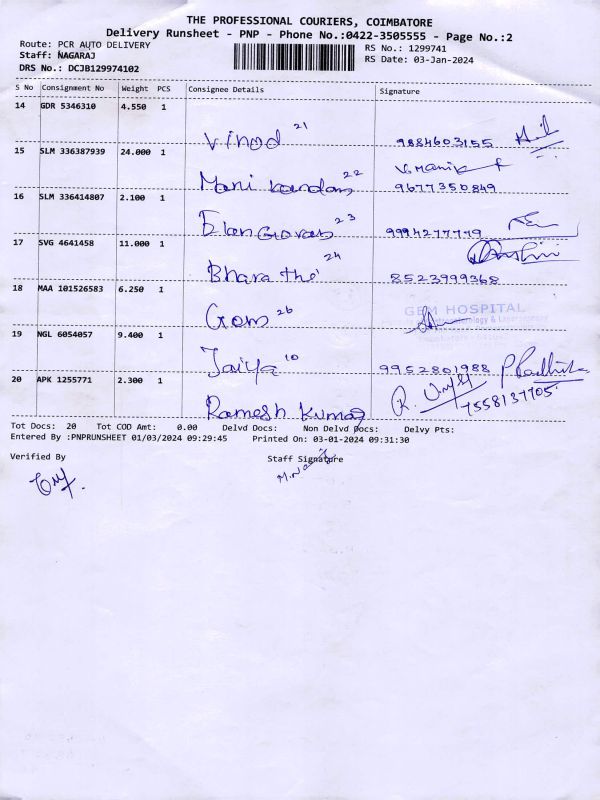 THE PROFESSIONAL COURIERS, COIMBATORE
Delivery Runsheet - PNP - Phone No.:0422-3505555 - Page No.:2
Route: PCR AUTO DELIVERY
Staff: NAGARAJ
DRS No.: DCJB129974102
RS No.: 1299741
RS Date: 03-Jan-2024
S No Consignment No Weight PCS Consignee Details Signature
14 GDR 5346310 4.550 1
Vinod 21 9884603155
15 SLM 336387939 24.000 1
Mani kandan 22 V.Manik 9677350849
16 SLM 336414807 2.100 1
Elangovan 23 9994277779
17 SVG 4641458 11.000 1
Bharathi 24 8523999368
18 MAA 101526583 6.250 1
Gem 26 GEM HOSPITAL
19 NGL 6054057 9.400 1
Jaiya 10 9952801988 P Radhika
20 APK 1255771 2.300 1
Ramesh Kumar R. 7558137705
Tot Docs: 20 Tot COD Amt: 0.00 Delvd Docs: Non Delvd Docs: Delvy Pts:
Entered By :PNPRUNSHEET 01/03/2024 09:29:45 Printed On: 03-01-2024 09:31:30
Verified By Staff Signature